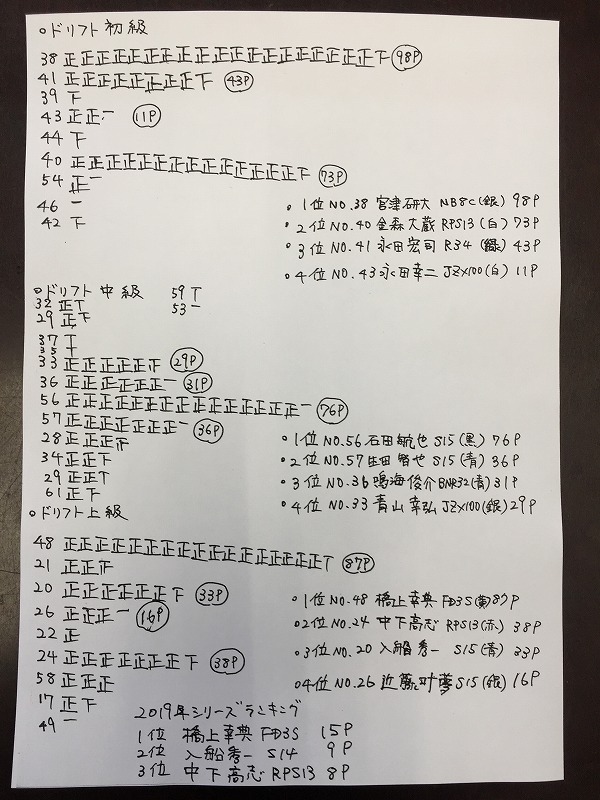 ○ドリフト初級
38 正正正正正正正正正正正正正正正正正正正下 98P
41 正正正正正正正正下 43P
39 下
43 正正一 11P
44 下
40 正正正正正正正正正正正正正正下 73P
54 正一
46 一
42 下
。1位 NO.38 宮津研大 NB8C(銀) 98P
。2位 NO.40 金森大蔵 RPS13(白) 73P
。3位 NO.41 永田宏司 R34(緑) 43P
。4位 NO.43 永田幸二 JZX100(白) 11P
○ドリフト中級 59 T
53 一
32 正T
29 正下
37 T
35 T
33 正正正正正正 29P
36 正正正正正正一 31P
56 正正正正正正正正正正正正正正正一 76P
57 正正正正正正正一 36P
28 正正正正
34 正正下
29 正正T
61 正下
。1位 NO.56 石田航也 S15(黒) 76P
。2位 NO.57 生田智也 S15(青) 36P
。3位 NO.36 鳴海俊介 BNR32(青) 31P
。4位 NO.33 青山幸弘 JZX100(銀) 29P
○ドリフト上級
48 正正正正正正正正正正正正正正正正正T 87P
21 正正正
20 正正正正正正下 33P
26 正正正一 16P
22 正
24 正正正正正正正下 38P
58 正正正
17 正下
49 一
。1位 NO.48 橋上幸典 FD3S(黄) 87P
○2位 NO.24 中下高志 RPS13(赤) 38P
。3位 NO.20 入船秀一 S15(青) 33P
○4位 NO.26 近藤叶夢 S15(銀) 16P
2019年シリーズランキング
1位 橋上幸典 FD3S 15P
2位 入船秀一 S14 9P
3位 中下高志 RPS13 8P